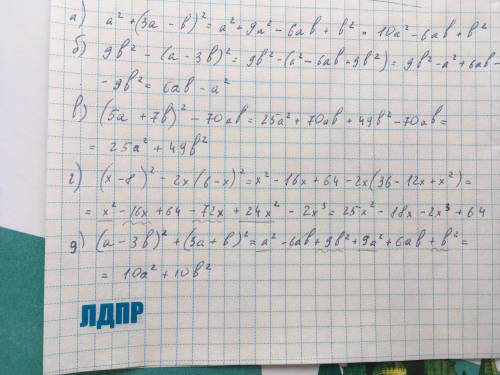 а) a² + (3a - b)² = a² + 9a² - 6ab + b² = 10a² - 6ab + b²
б) 9b² - (a - 3b)² = 9b² - (a² - 6ab + 9b²) = 9b² - a² + 6ab -
- 9b² = 6ab - a²
в) (5a + 7b)² - 70ab = 25a² + 70ab + 49b² - 70ab =
= 25a² + 49b²
г) (x - 8)² - 2x(6 - x)² = x² - 16x + 64 - 2x(36 - 12x + x²) =
= x² - 16x + 64 - 72x + 24x² - 2x³ = 25x² - 88x - 2x³ + 64
д) (a - 3b)² + (3a + b)² = a² - 6ab + 9b² + 9a² + 6ab + b² =
= 10a² + 10b²
ЛДПР